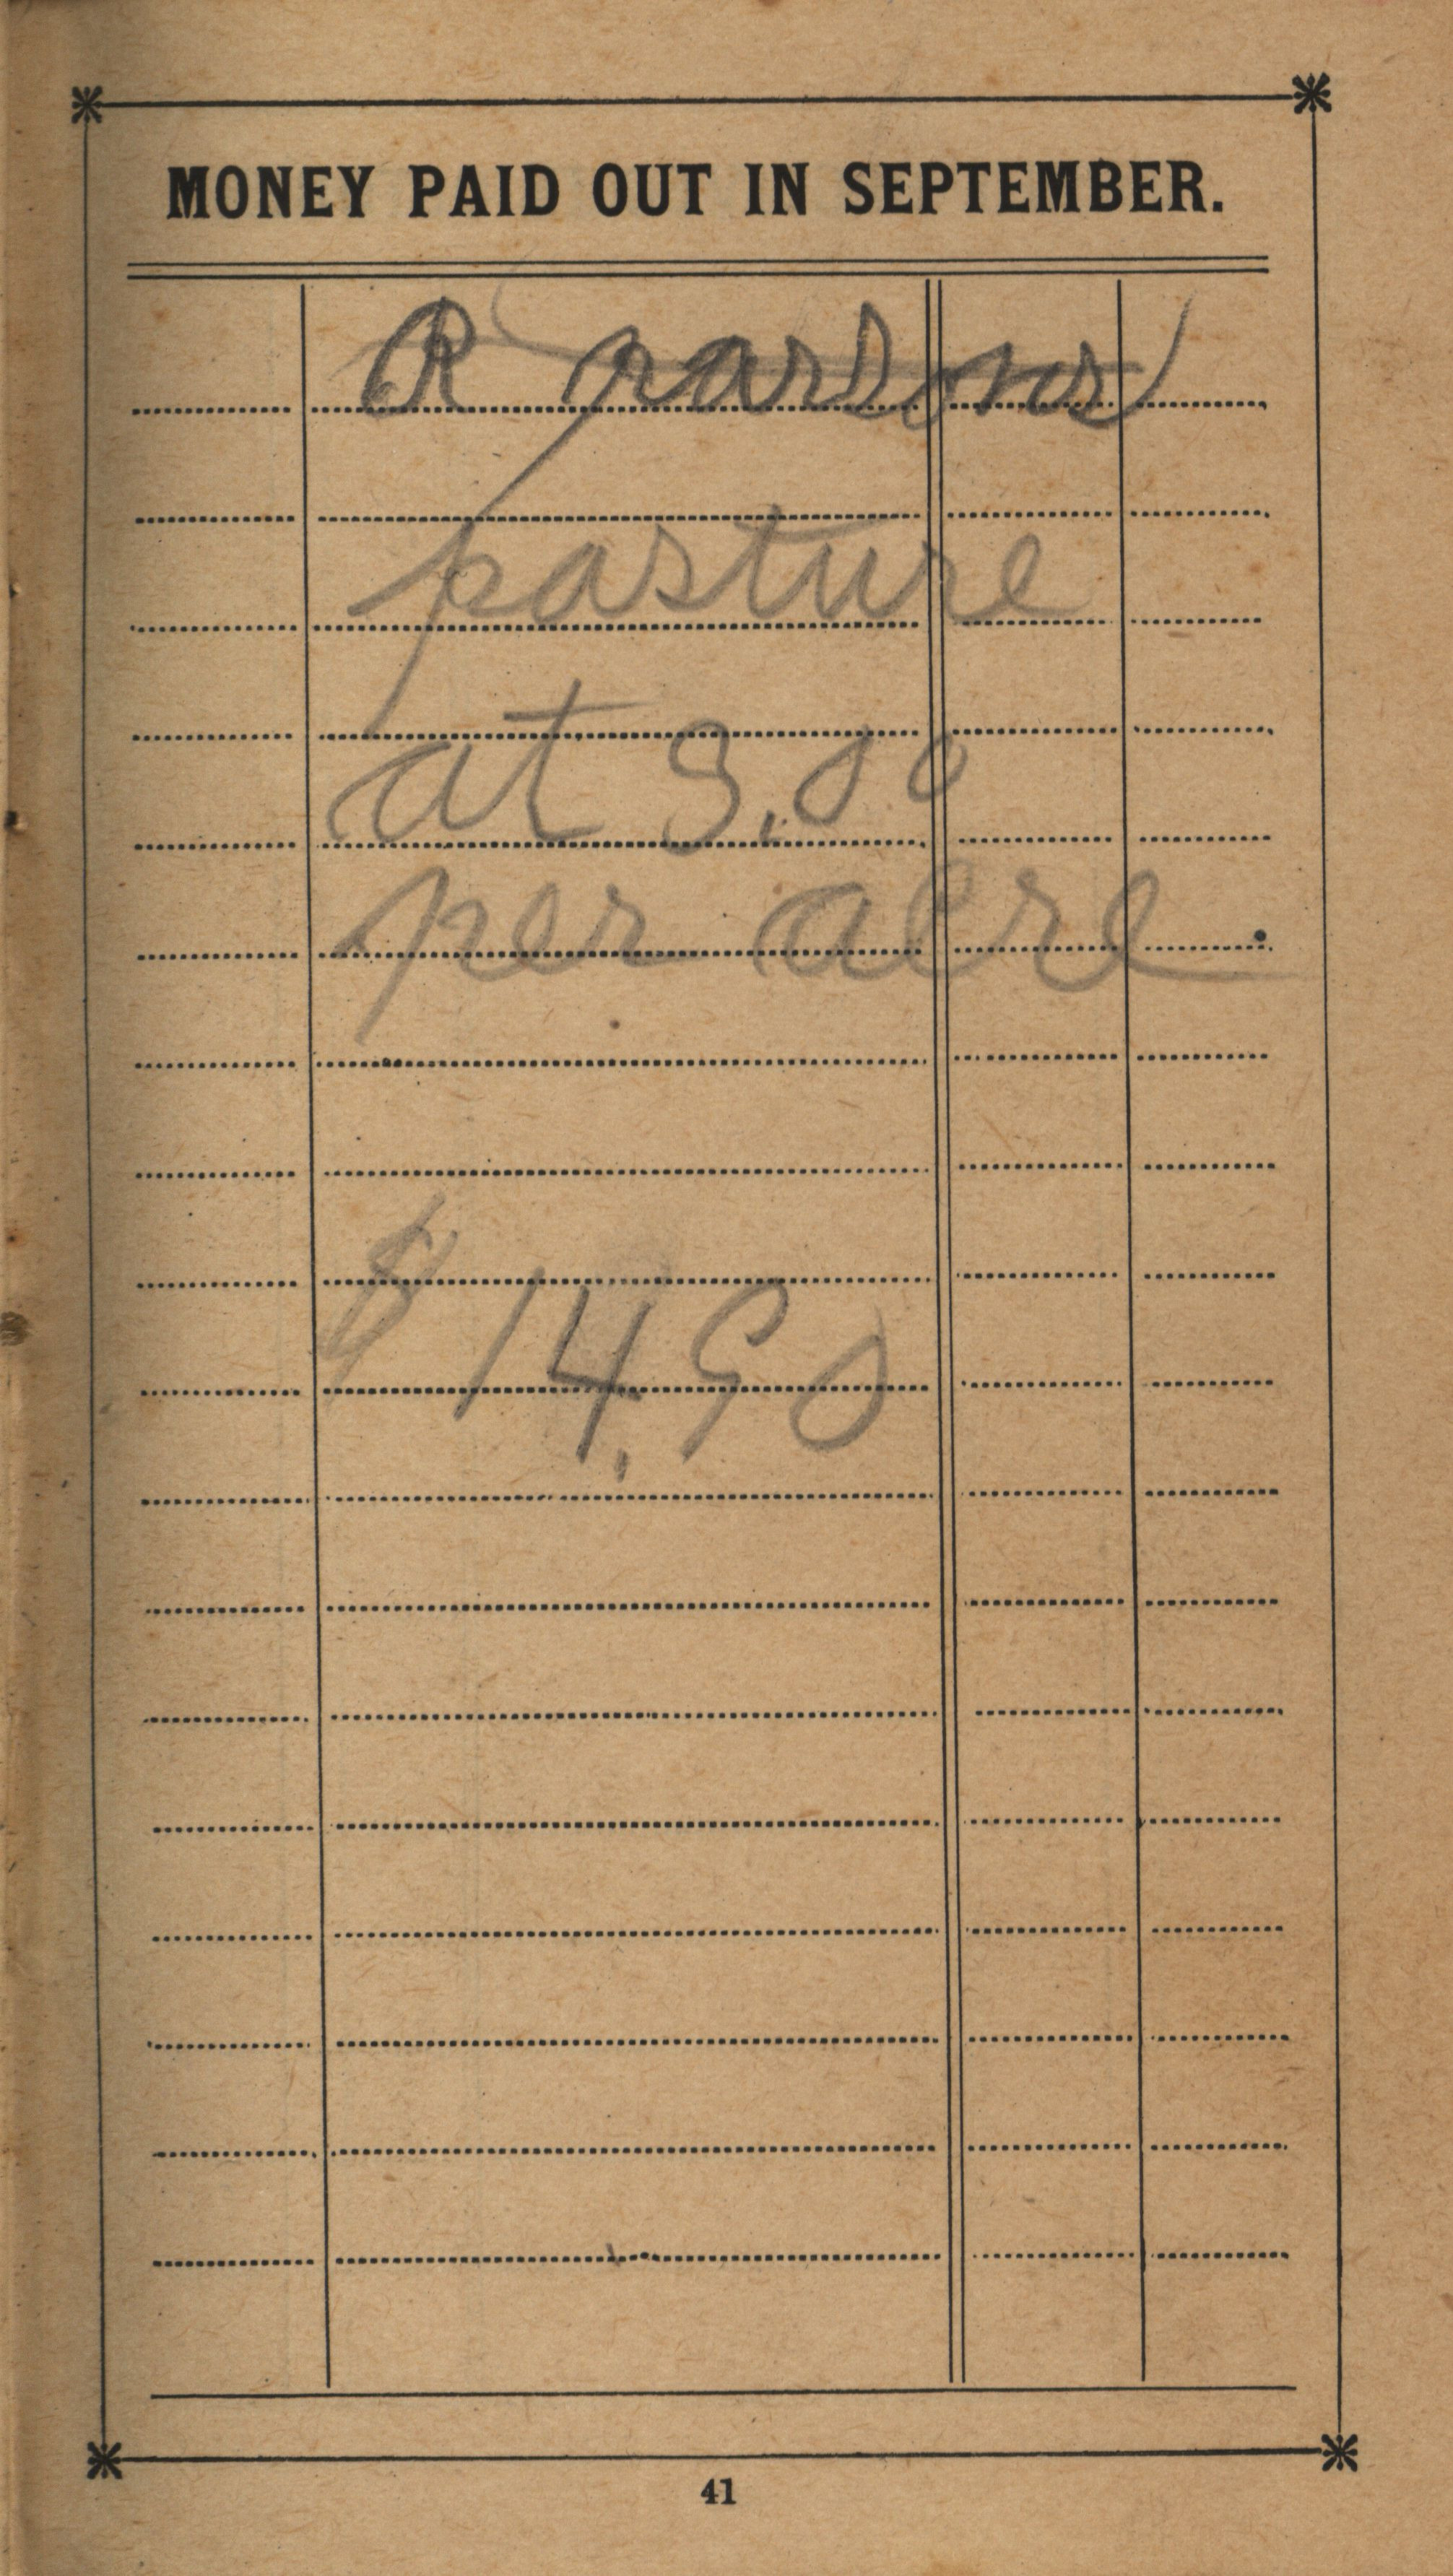 MONEY PAID OUT IN SEPTEMBER.
R parsons
pasture
at 3,00
per acre
$14,50
41